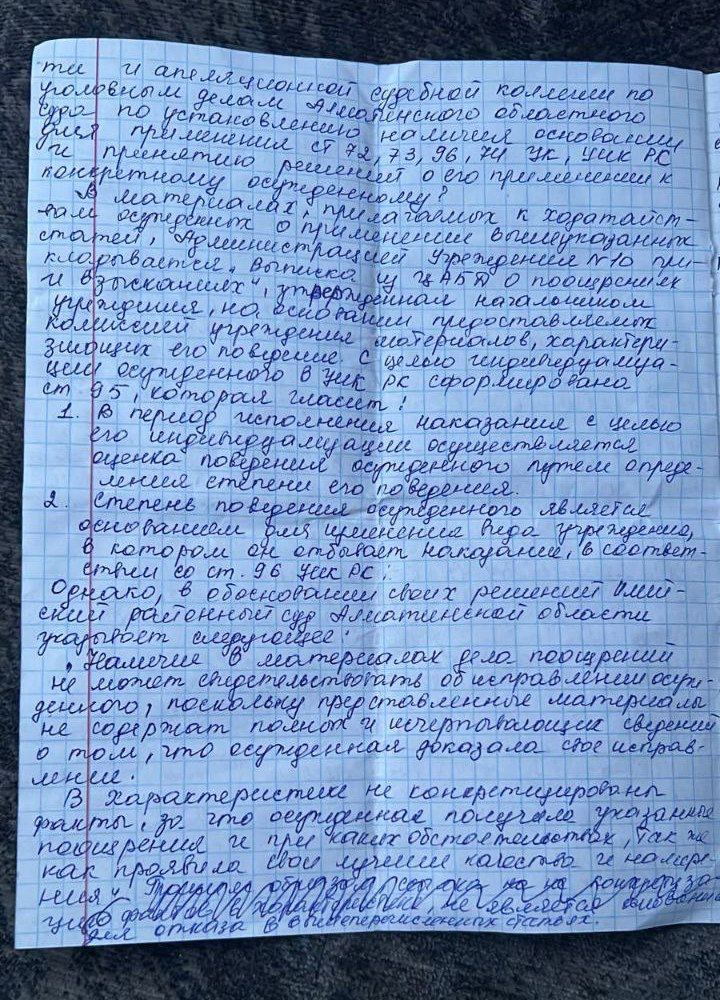 ти и апеляционной судебной коллегии по
уголовным делам Алматинского областного
суда по установлению наличия оснований
для применения ст 72, 73, 96, 74 УК, УИК РК
и принятию решений о его применении к
конкретному осужденному?
В материалах, прилагаемых к ходатайст-
вам осужденных о применении вышеуказанных
статей, Администрацией Учреждения №10 при-
кладывается "Выписка из ЦАБД о поощрениях
и взысканиях", утвержденная начальником
учреждения, на основании предоставляемых
комиссией учреждения материалов, характери-
зующих его поведение. С целью индивидуализа-
ции осужденного в УИК РК сформирована
ст 95, которая гласит:
1. В период исполнения наказания с целью
его индивидуализации осуществляется
оценка поведения осужденного путем опреде-
ления степени его поведения.
2. Степень поведения осужденного является
основанием для изменения вида учреждения,
в котором он отбывает наказание, в соответ-
ствии со ст. 96 УИК РК;
Однако, в обосновании своих решений Илий-
ский районный суд Алматинской области
указывает следующее:
"Наличие в материалах дела поощрений
не может свидетельствовать об исправлении осуж-
денного, поскольку представленные материалы
не содержат полных и исчерпывающих сведений
о том, что осужденная доказала свое исправ-
ление.
В характеристике не конкретизированы
факты, за что осужденная получила указанные
поощрения и при каких обстоятельствах, так же
как проявила свои лучшие качества и намере-
ния". Таким образом ссылка на не конкретиза-
цию фактов в характеристике, не является основанием
для отказа в вышеперечисленных статьях.